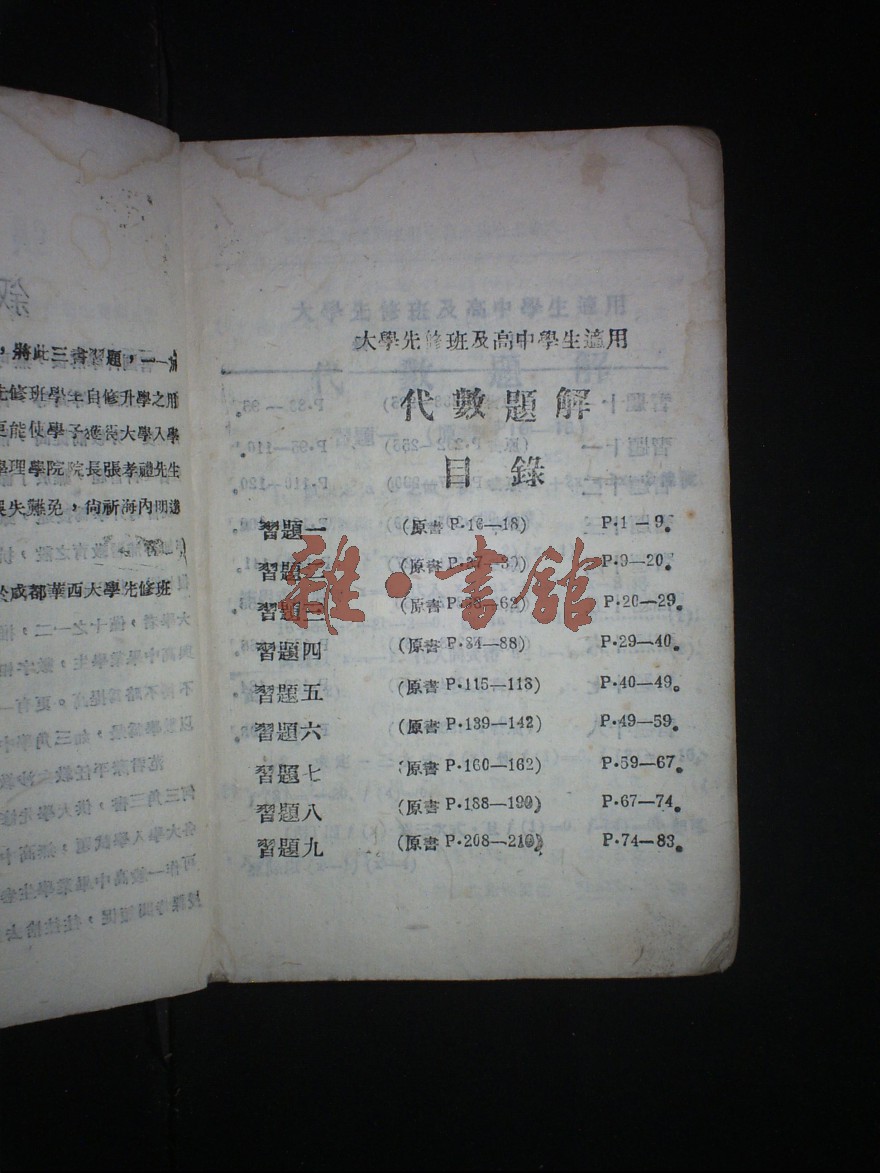 ，將此三書習題，一一
先修班學生自修升學之用
更能使學子進窺大學入學
學理學院院長張孝禮先生
誤失難免，尙祈海內明達
於成都華西大學先修班
大學先修班及高中學生適用
代數題解
目錄
習題一 (原書 P·16—18) P·1—9。
習題二 (原書 P·37—39) P·9—20。
習題三 (原書 P·58—62) P·20—29。
習題四 (原書 P·84—88) P·29—40。
習題五 (原書 P·115—118) P·40—49。
習題六 (原書 P·139—142) P·49—59。
習題七 (原書 P·160—162) P·59—67。
習題八 (原書 P·188—190) P·67—74。
習題九 (原書 P·208—210) P·74—83。
雜·書舘